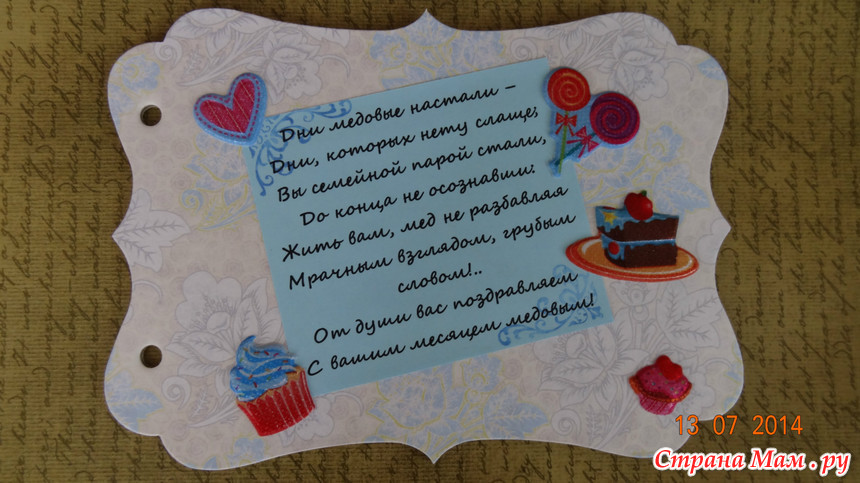 Дни медовые настали –
Дни, которых нету слаще;
Вы семейной парой стали,
До конца не осознавши:
Жить вам, мед не разбавляя
Мрачным взглядом, грубым
словом!..
От души вас поздравляем
С вашим месяцем медовым!
13 07 2014
Страна Мам.ру